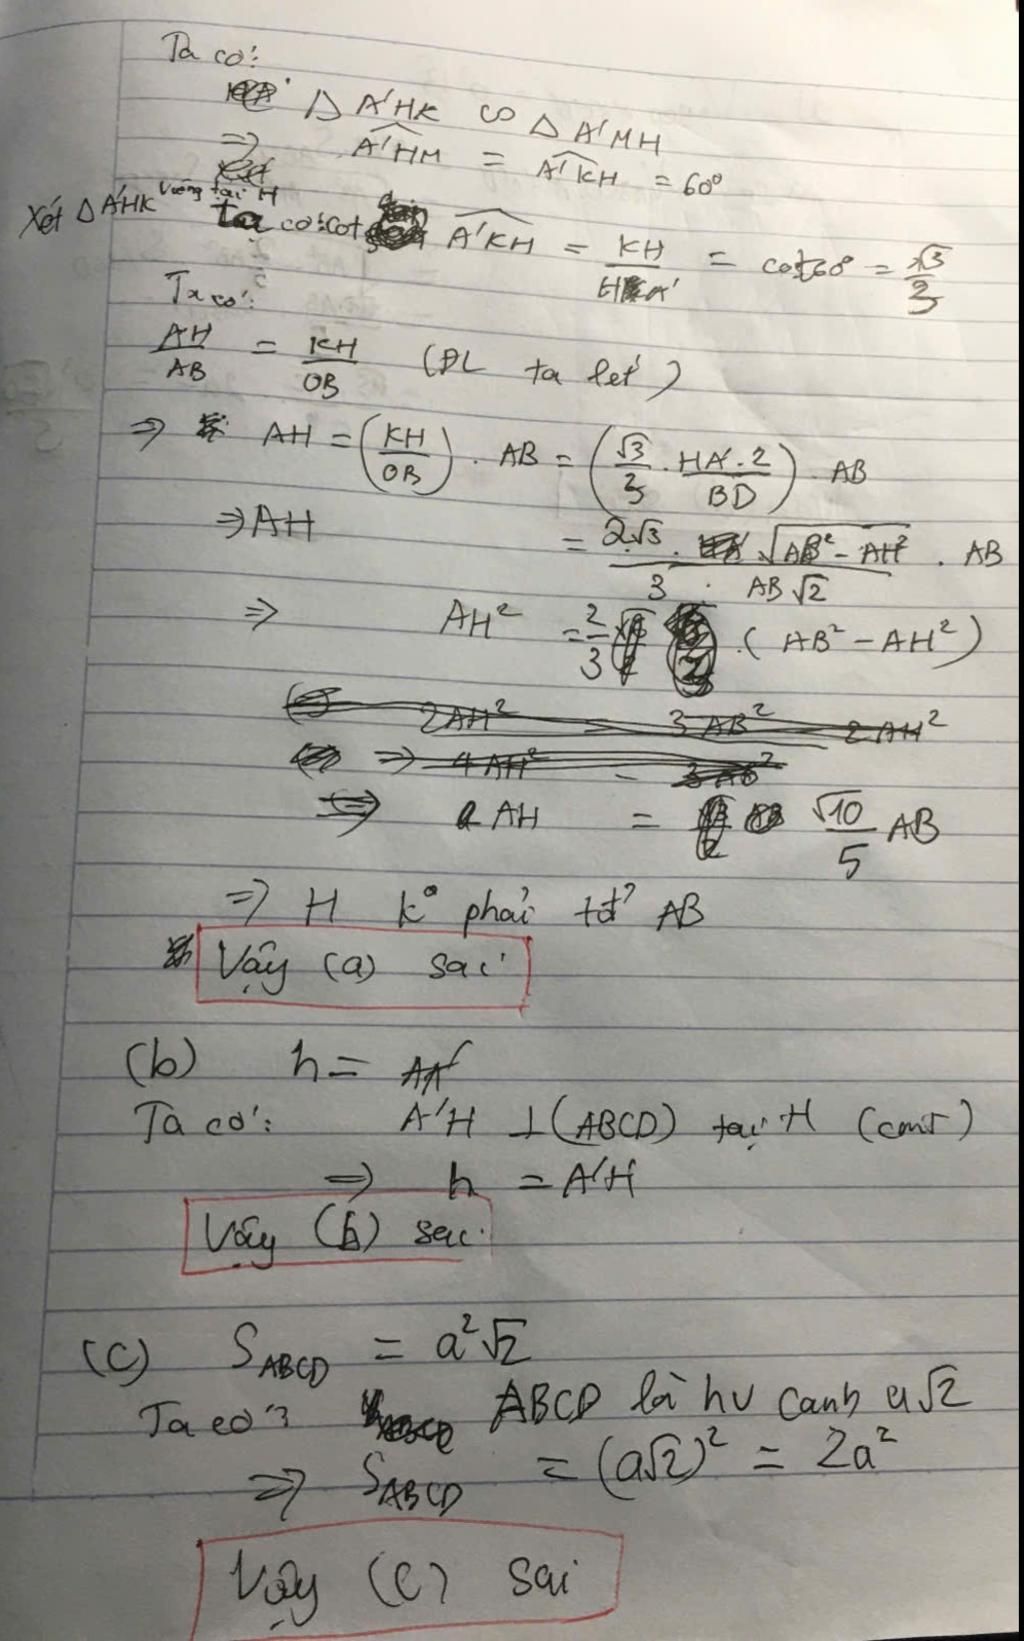 Ta có:
Δ A'HK ∽ Δ A'MH
⇒ A'HM = A'KH = 60°
Xét Δ A'HK vuông tại H ta có: cot A'KH = KH/HA' = cot 60° = √3/3
Ta có:
AH/AB = KH/OB (ĐL ta lét)
⇒ AH = (KH/OB) . AB = (√3/3 . HA'.2/BD) . AB
⇒ AH = 2√3 . √(AB² - AH²) / 3 . AB√2 . AB
⇒ AH² = 2/3 . (AB² - AH²)
⇒ AH = √10/5 AB
⇒ H k° phải tđ AB
Vậy (a) sai
(b) h = AA'
Ta có: A'H ⊥ (ABCD) tại H (cmt)
⇒ h = A'H
Vậy (b) sai
(c) S_ABCD = a²√2
Ta có: ABCD là hv cạnh a√2
⇒ S_ABCD = (a√2)² = 2a²
Vậy (c) sai